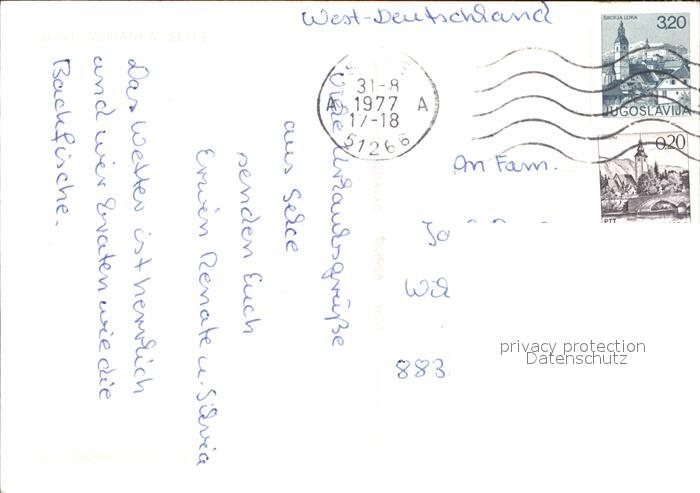 West-Deutschland
ŠKOFJA LOKA
3,20
JUGOSLAVIJA
0,20
PTT
31-8
A 1977 A
17-18
51266
An Fam.
Ja
Wil
883
privacy protection
Datenschutz
Viele Urlaubsgrüße
aus Selce
senden Euch
Erwin Renate u. Silvia
Das Wetter ist herrlich
und wir braten wie die
Backfische.